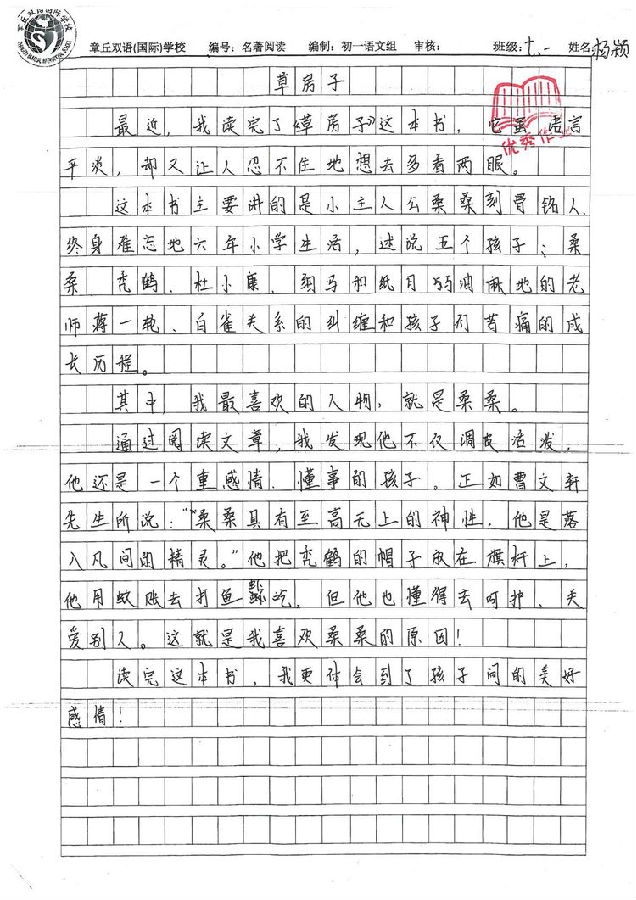 章丘双语(国际)学校 编号：名著阅读 编制：初一语文组 审核： 班级：七.一 姓名 杨颖
草房子
最近，我读完了《草房子》这本书，它虽语言
优秀作业
平淡，却又让人忍不住地想去多看两眼。
这本书主要讲的是小主人公桑桑刻骨铭人，
终身难忘地六年小学生活，述说五个孩子：桑
桑、秃鹤、杜小康、细马和纸月与油麻地的老
师蒋一轮、白雀关系的纠缠和孩子们苦痛的成
长历程。
其中，我最喜欢的人物，就是桑桑。
通过阅读文章，我发现他不仅调皮活泼，
他还是一个重感情、懂事的孩子。正如曹文轩
先生所说：“桑桑具有至高无上的神性，他是落
入凡间的精灵。”他把秃鹤的帽子放在旗杆上，
他用蚊账去打鱼 吃，但他也懂得去呵护、关
爱别人。这就是我喜欢桑桑的原因！
读完这本书，我更体会到了孩子间的美好
感情！